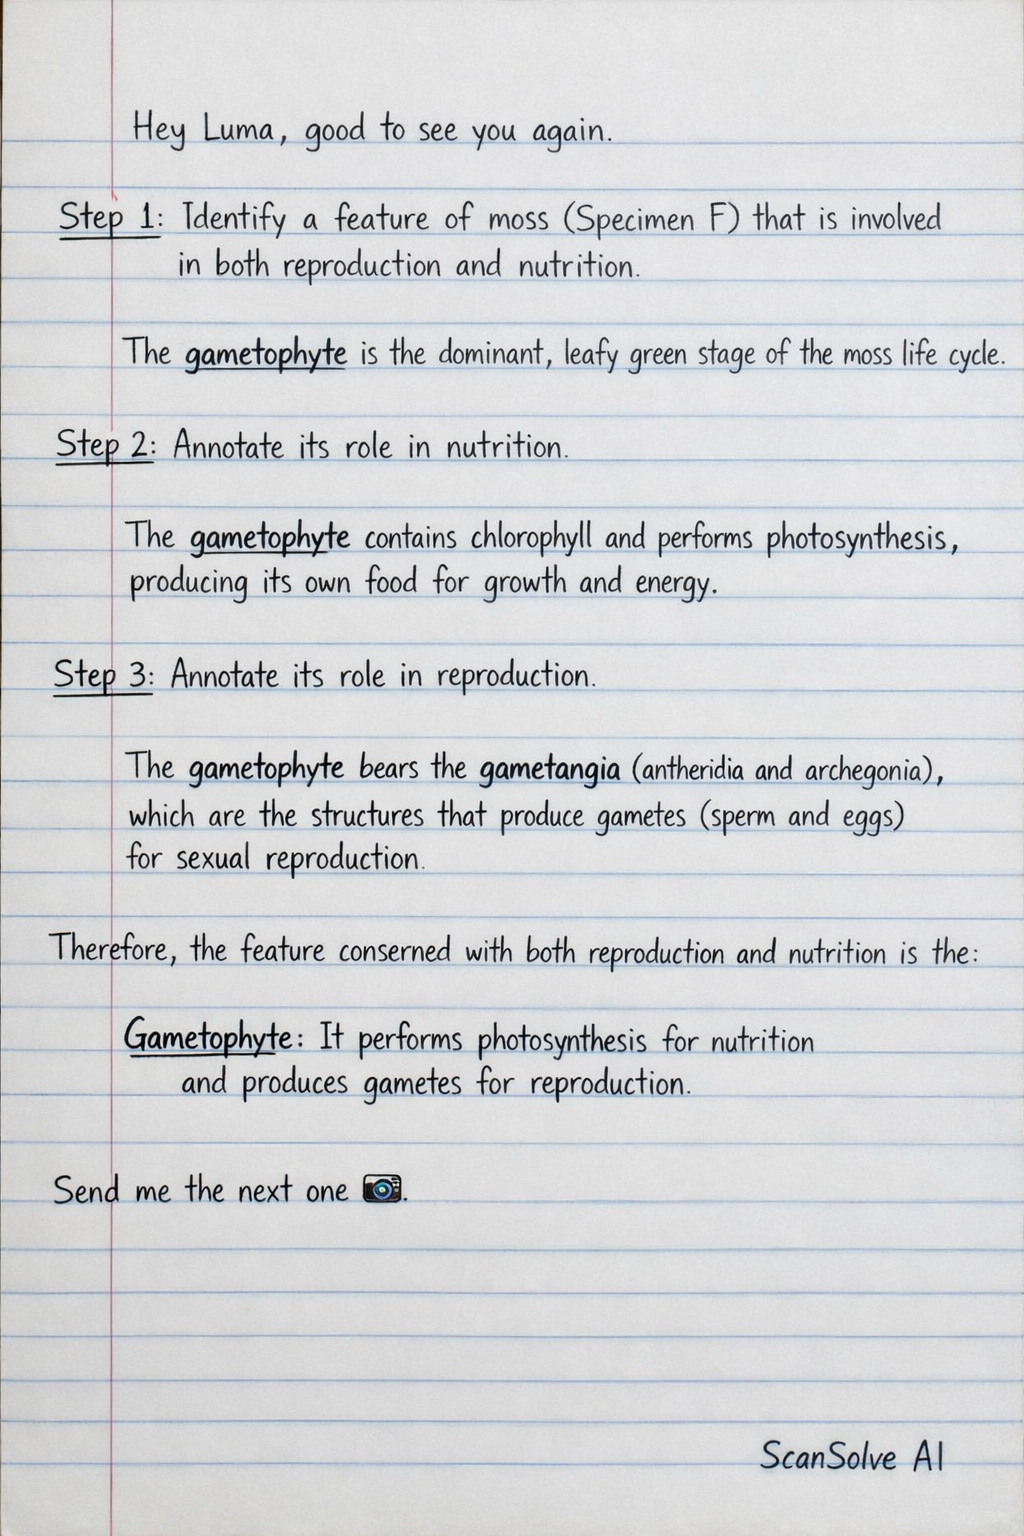 Hey Luma, good to see you again.
Step 1: Identify a feature of moss (Specimen F) that is involved
in both reproduction and nutrition.
The gametophyte is the dominant, leafy green stage of the moss life cycle.
Step 2: Annotate its role in nutrition.
The gametophyte contains chlorophyll and performs photosynthesis,
producing its own food for growth and energy.
Step 3: Annotate its role in reproduction.
The gametophyte bears the gametangia (antheridia and archegonia),
which are the structures that produce gametes (sperm and eggs)
for sexual reproduction.
Therefore, the feature conserned with both reproduction and nutrition is the:
Gametophyte: It performs photosynthesis for nutrition
and produces gametes for reproduction.
Send me the next one 📷.
ScanSolve AI